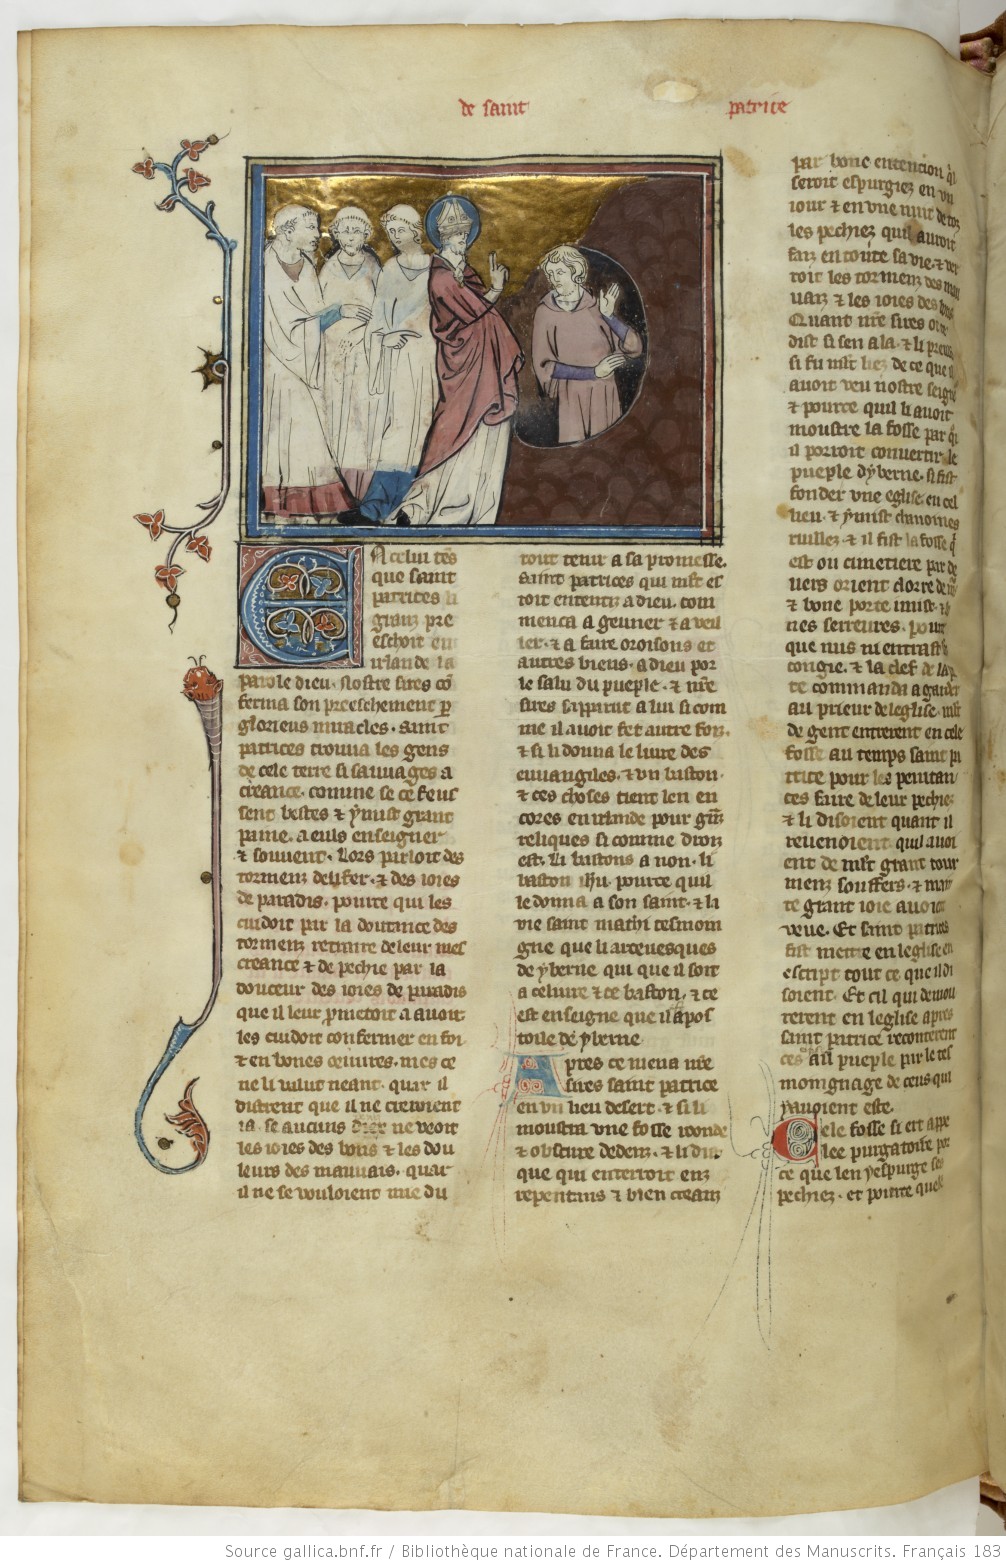 de saint patrice
En celui tẽs
que saint
patrices li
granz pre
eschoit en
irlande la
parole dieu. nostre sires cõ
ferma son preeschement p
glorieus miracles. saint
patrices trouua les gens
de cele terre si sauuages a
creance. comme se ce feus
sent bestes ⁊ y mist grant
paine. a euls enseigner
⁊ souuent. Lors parloit des
tormenz denfer. ⁊ des ioies
de paradis. pource qui les
cuidoit par la doutance des
tormenz retraire de leur mes
creance ⁊ de pechie par la
douceur des ioies de paradis
que il leur pmetoit a auoir
les cuidoit confermer en foi
⁊ en bones oeuures. mes ce
ne li valut neant. quar il
distrent que il ne creroient
ia. se aucuns dier ne veoit
les ioies des bons ⁊ les dou
leurs des mauuais. quar
il ne se vouloient mie du
tout tenir a sa promesse.
Saint patrices qui mlt es
toit ententiz a dieu. com
menca a geuner ⁊ a veil
lier. ⁊ a faire oroisons et
autres biens. a dieu por
le salu du pueple. ⁊ nr̃e
sires sapparut a lui si com
me il auoit fet autre foiz.
⁊ si li donna le liure des
euuangiles. ⁊ vn baston.
⁊ ces choses tient len en
cores en irlande pour gñz
reliques si comme droiz
est. Li bastons a non. li
baston ihũ. pource quil
le donna a son saint. ⁊ li
vie saint mathi tesmoin
gne que li arceuesques
de yberne. qui que il soit
a celiure ⁊ ce baston. ⁊ ce
est enseigne que il ē apos
toile de yberne
Apres ce mena nr̃e
sires saint patrice
en vn lieu desert. ⁊ si li
moustra vne fosse roonde
⁊ obscure dedenz. ⁊ li dist
que qui enterroit enz
repentans ⁊ bien creanz
par bone entencion q̃l
seroit espurgiez en vn
iour ⁊ en vne nuit de toz
les pechiez quil auroit
faiz en toute sa vie. ⁊ ver
roit les tormenz des mau
uaiz ⁊ les ioies des bons
Quant nr̃e sires ot ce
dist si sen ala. ⁊ li preuz
si fu mlt liez de ce que il
auoit veu nostre seign̄
⁊ pource quil li auoit
moustre la fosse par q̃i
il porroit conuertir le
pueple dyberne. si fist
fonder vne eglise en cel
lieu. ⁊ y mist chanoines
riullez. ⁊ il fist la fosse q̃
est ou cimetiere par de
uers orient clorre de
⁊ bone porte mise. ⁊ bo
nes serreures. pour
que nus ni entrast sãs
congie. ⁊ la clef de la p
te commanda a garder
au prieur de leglise. mlt
de gent entrerent en cele
fosse au temps saint pa
trice pour les peniten
ces faire de leur pechiez
⁊ li disoient quant il
reuenoient quil auoi
ent de mlt grant tour
menz souffers. ⁊ mau
te grant ioie auoient
veue. Et saint patrices
fist metre en leglise en
escript tout ce que il di
soient. Et cil qui demou
rerent en leglise apres
saint patrice reconterent
ces au pueple par le tes
moingnage de ceus qui
y auoient este.
Cele fosse si est appe
lee purgatoire por
ce que len y espurge ses
pechiez. et pource que
Source gallica.bnf.fr / Bibliothèque nationale de France. Département des Manuscrits. Français 183